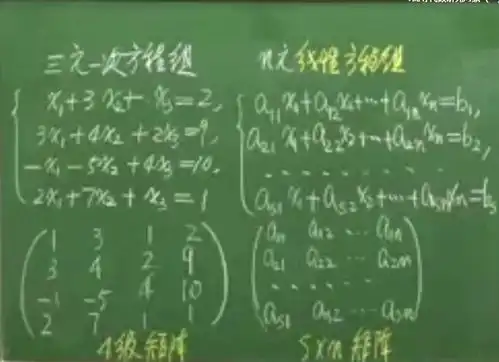 三元一次方程组
x₁+3x₂+x₃=2,
3x₁+4x₂+2x₃=9,
-x₁-5x₂+4x₃=10,
2x₁+7x₂+x₃=1
1 3 1 2
3 4 2 9
-1 -5 4 10
2 7 1 1
4级矩阵
n元线性方程组
a₁₁x₁+a₁₂x₂+…+a₁ₙxₙ=b₁,
a₂₁x₁+a₂₂x₂+…+a₂ₙxₙ=b₂,
……
aₛ₁x₁+aₛ₂x₂+…+aₛₙxₙ=bₛ
a₁₁ a₁₂ … a₁ₙ
a₂₁ a₂₂ … a₂ₙ
……
aₛ₁ aₛ₂ … aₛₙ
s×n矩阵